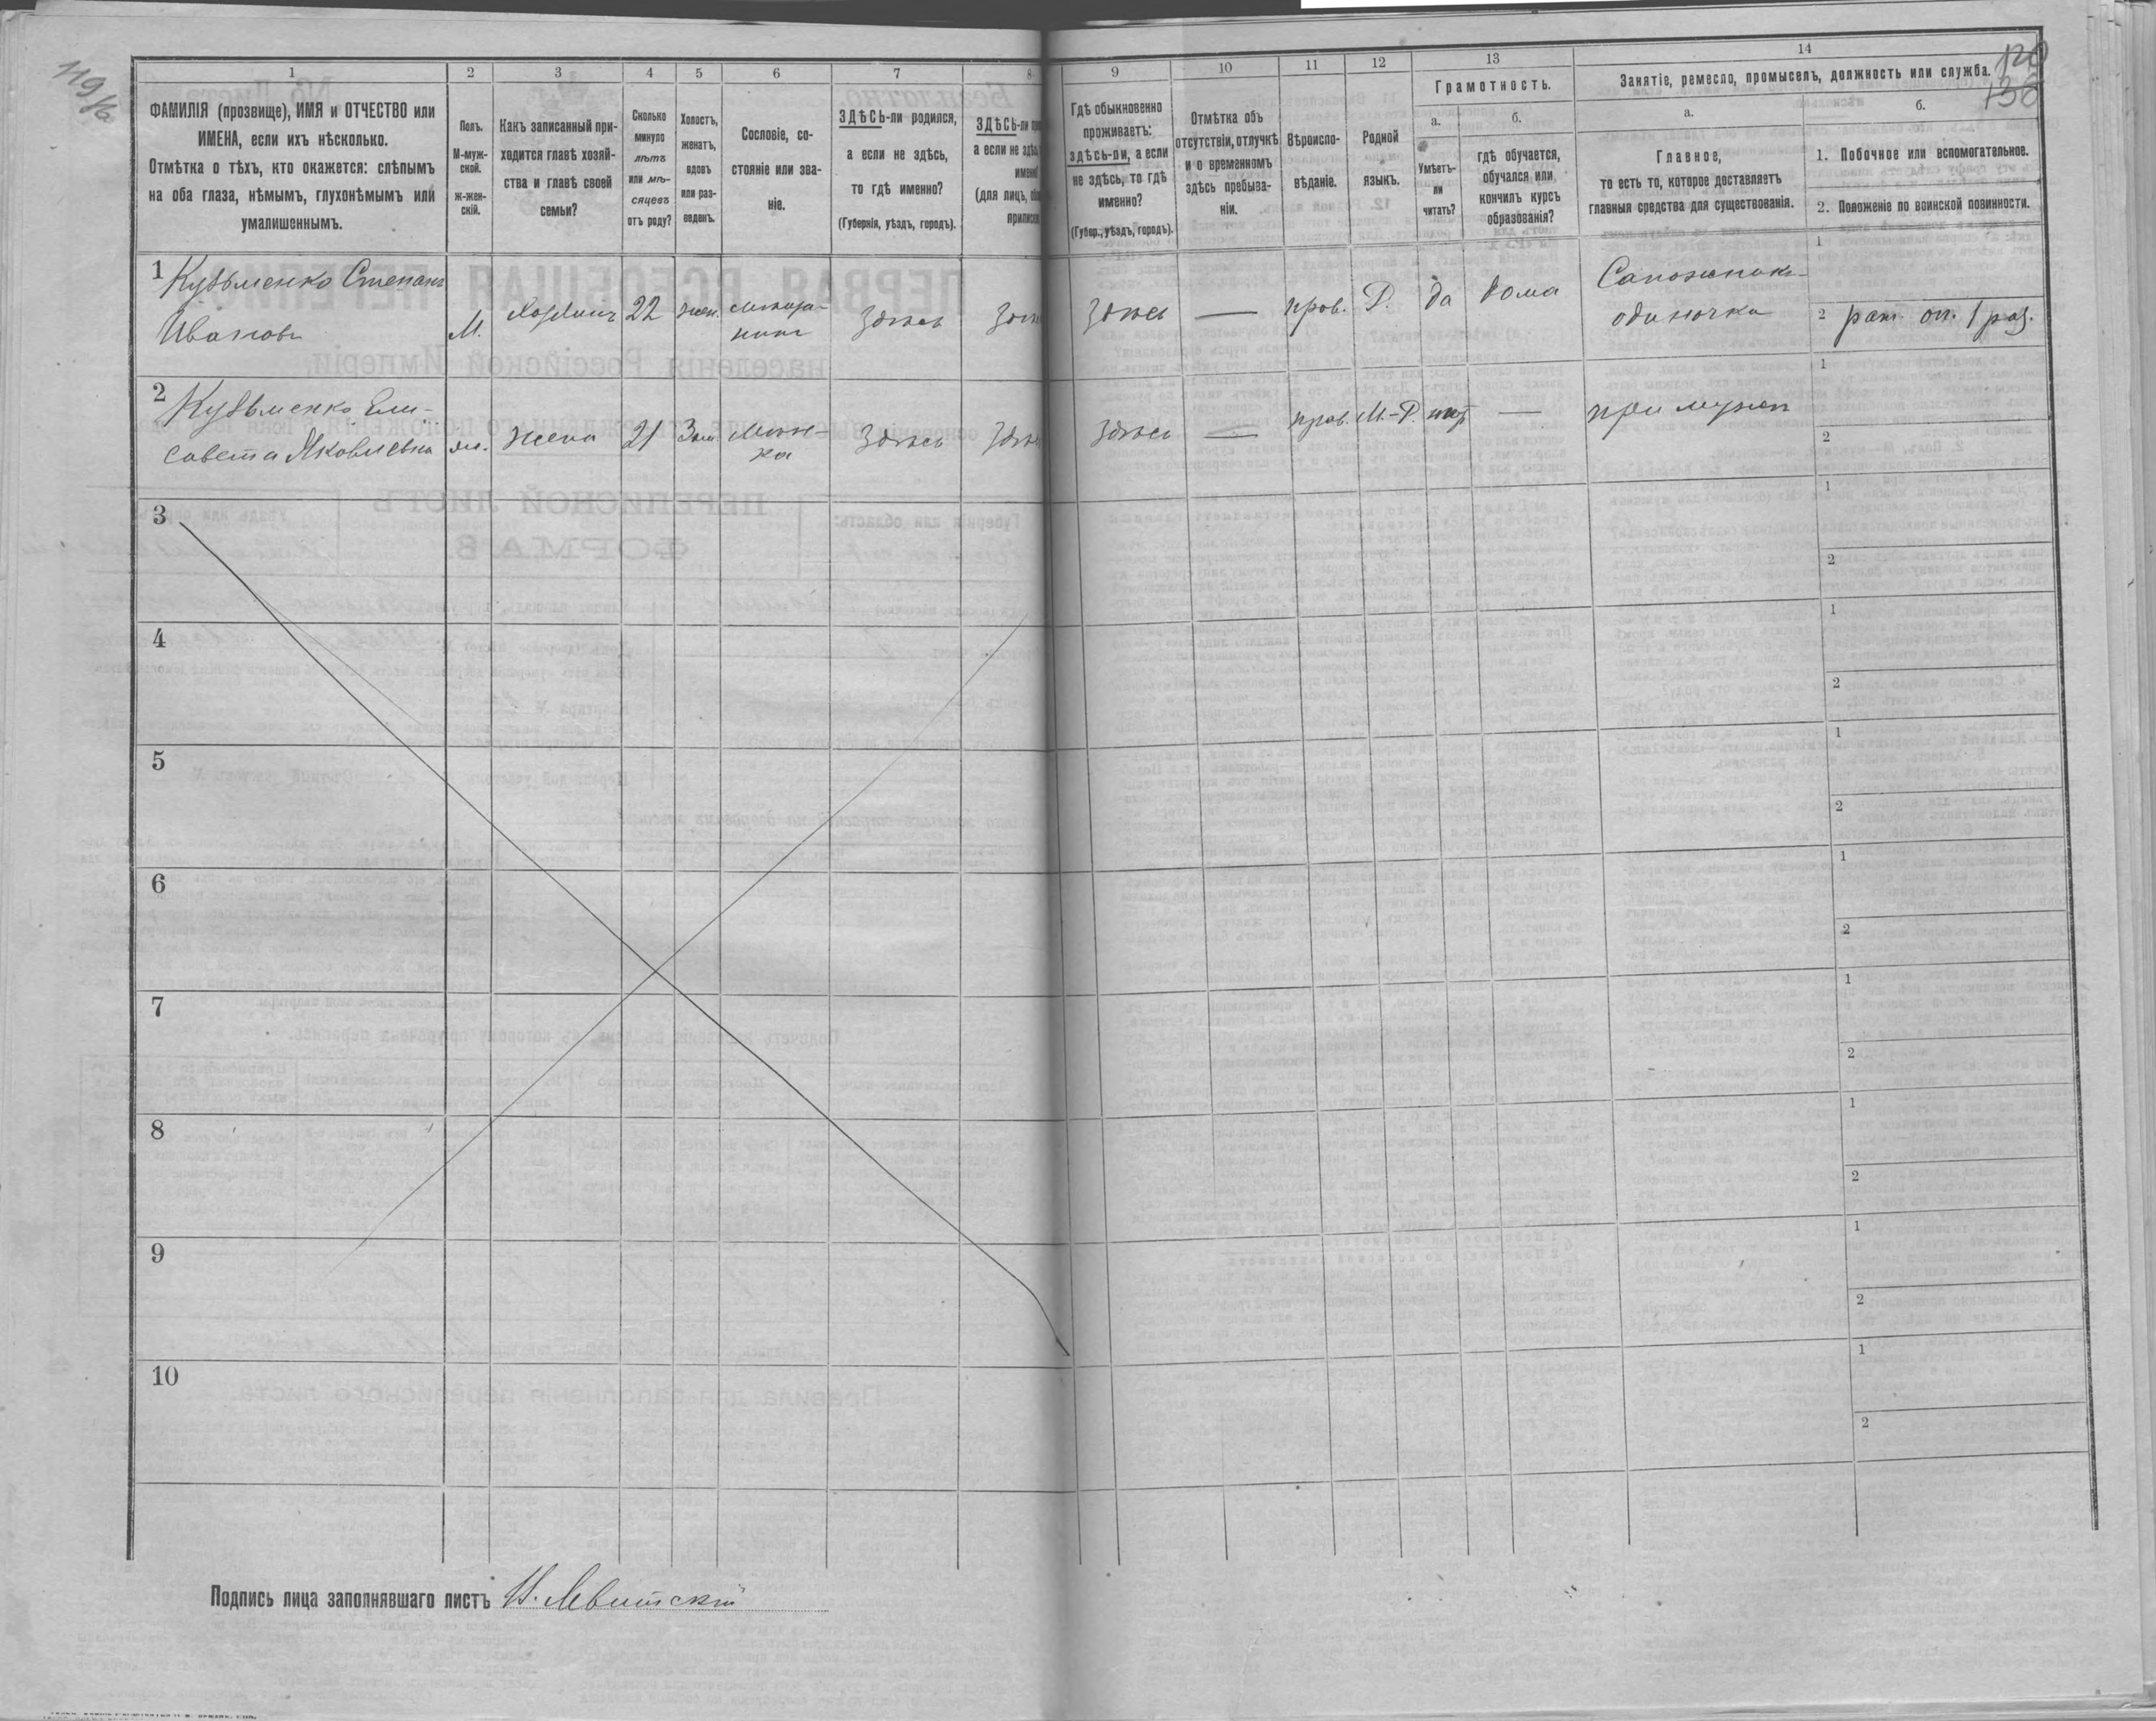 119 Ѵо
120
136
1
2
3
4
5
6
7
8
9
10
11
12
13
14
ФАМИЛІЯ (прозвище), ИМЯ и ОТЧЕСТВО или
ИМЕНА, если ихъ нѣсколько.
Отмѣтка о тѣхъ, кто окажется: слѣпымъ
на оба глаза, нѣмымъ, глухонѣмымъ или
умалишеннымъ.
Полъ.
М-муж-
ской.
ж-жен-
скій.
Какъ записанный при-
ходится главѣ хозяй-
ства и главѣ своей
семьи?
Сколько
минуло
лѣтъ
или мѣ-
сяцевъ
отъ роду?
Холостъ,
женатъ,
вдовъ
или раз-
веденъ.
Сословіе, со-
стояніе или зва-
ніе.
ЗДѢСЬ-ли родился,
а если не здѣсь,
то гдѣ именно?
(Губернія, уѣздъ, городъ).
ЗДѢСЬ-ли
а если не здѣ
именно
(для лицъ,
приписк
Гдѣ обыкновенно
проживаетъ:
здѣсь-ли, а если
не здѣсь, то гдѣ
именно?
(Губер., уѣздъ, городъ).
Отмѣтка объ
отсутствіи, отлучкѣ
и о временномъ
здѣсь пребыва-
ніи.
Вѣроиспо-
вѣданіе.
Родной
языкъ.
Грамотность.
а.
Умѣетъ-
ли
читать?
б.
гдѣ обучается,
обучался или
кончилъ курсъ
образованія?
Занятіе, ремесло, промыселъ, должность или служба.
а.
Главное,
то есть то, которое доставляетъ
главныя средства для существованія.
б.
1. Побочное или вспомогательное.
2. Положеніе по воинской повинности.
1
Кузьменко Степанъ
Ивановъ
М.
Хозяинъ
22
жен.
мѣща-
нинъ
Здѣсь
Здѣсь
Здѣсь
—
прав.
Р.
да
дома
Сапожникъ
одиночка
1
2 рат. оп. 1 раз.
2
Кузьменко Ели-
савета Яковлевна
ж.
жена
21
Зам.
мѣщ-
ка
Здѣсь
Здѣсь
Здѣсь
—
прав.
М.-Р.
нѣт
—
при мужѣ
1
2
3
1
2
4
1
2
5
1
2
6
1
2
7
1
2
8
1
2
9
1
2
10
1
2
Подпись лица заполнявшаго листъ Н. Левитскій